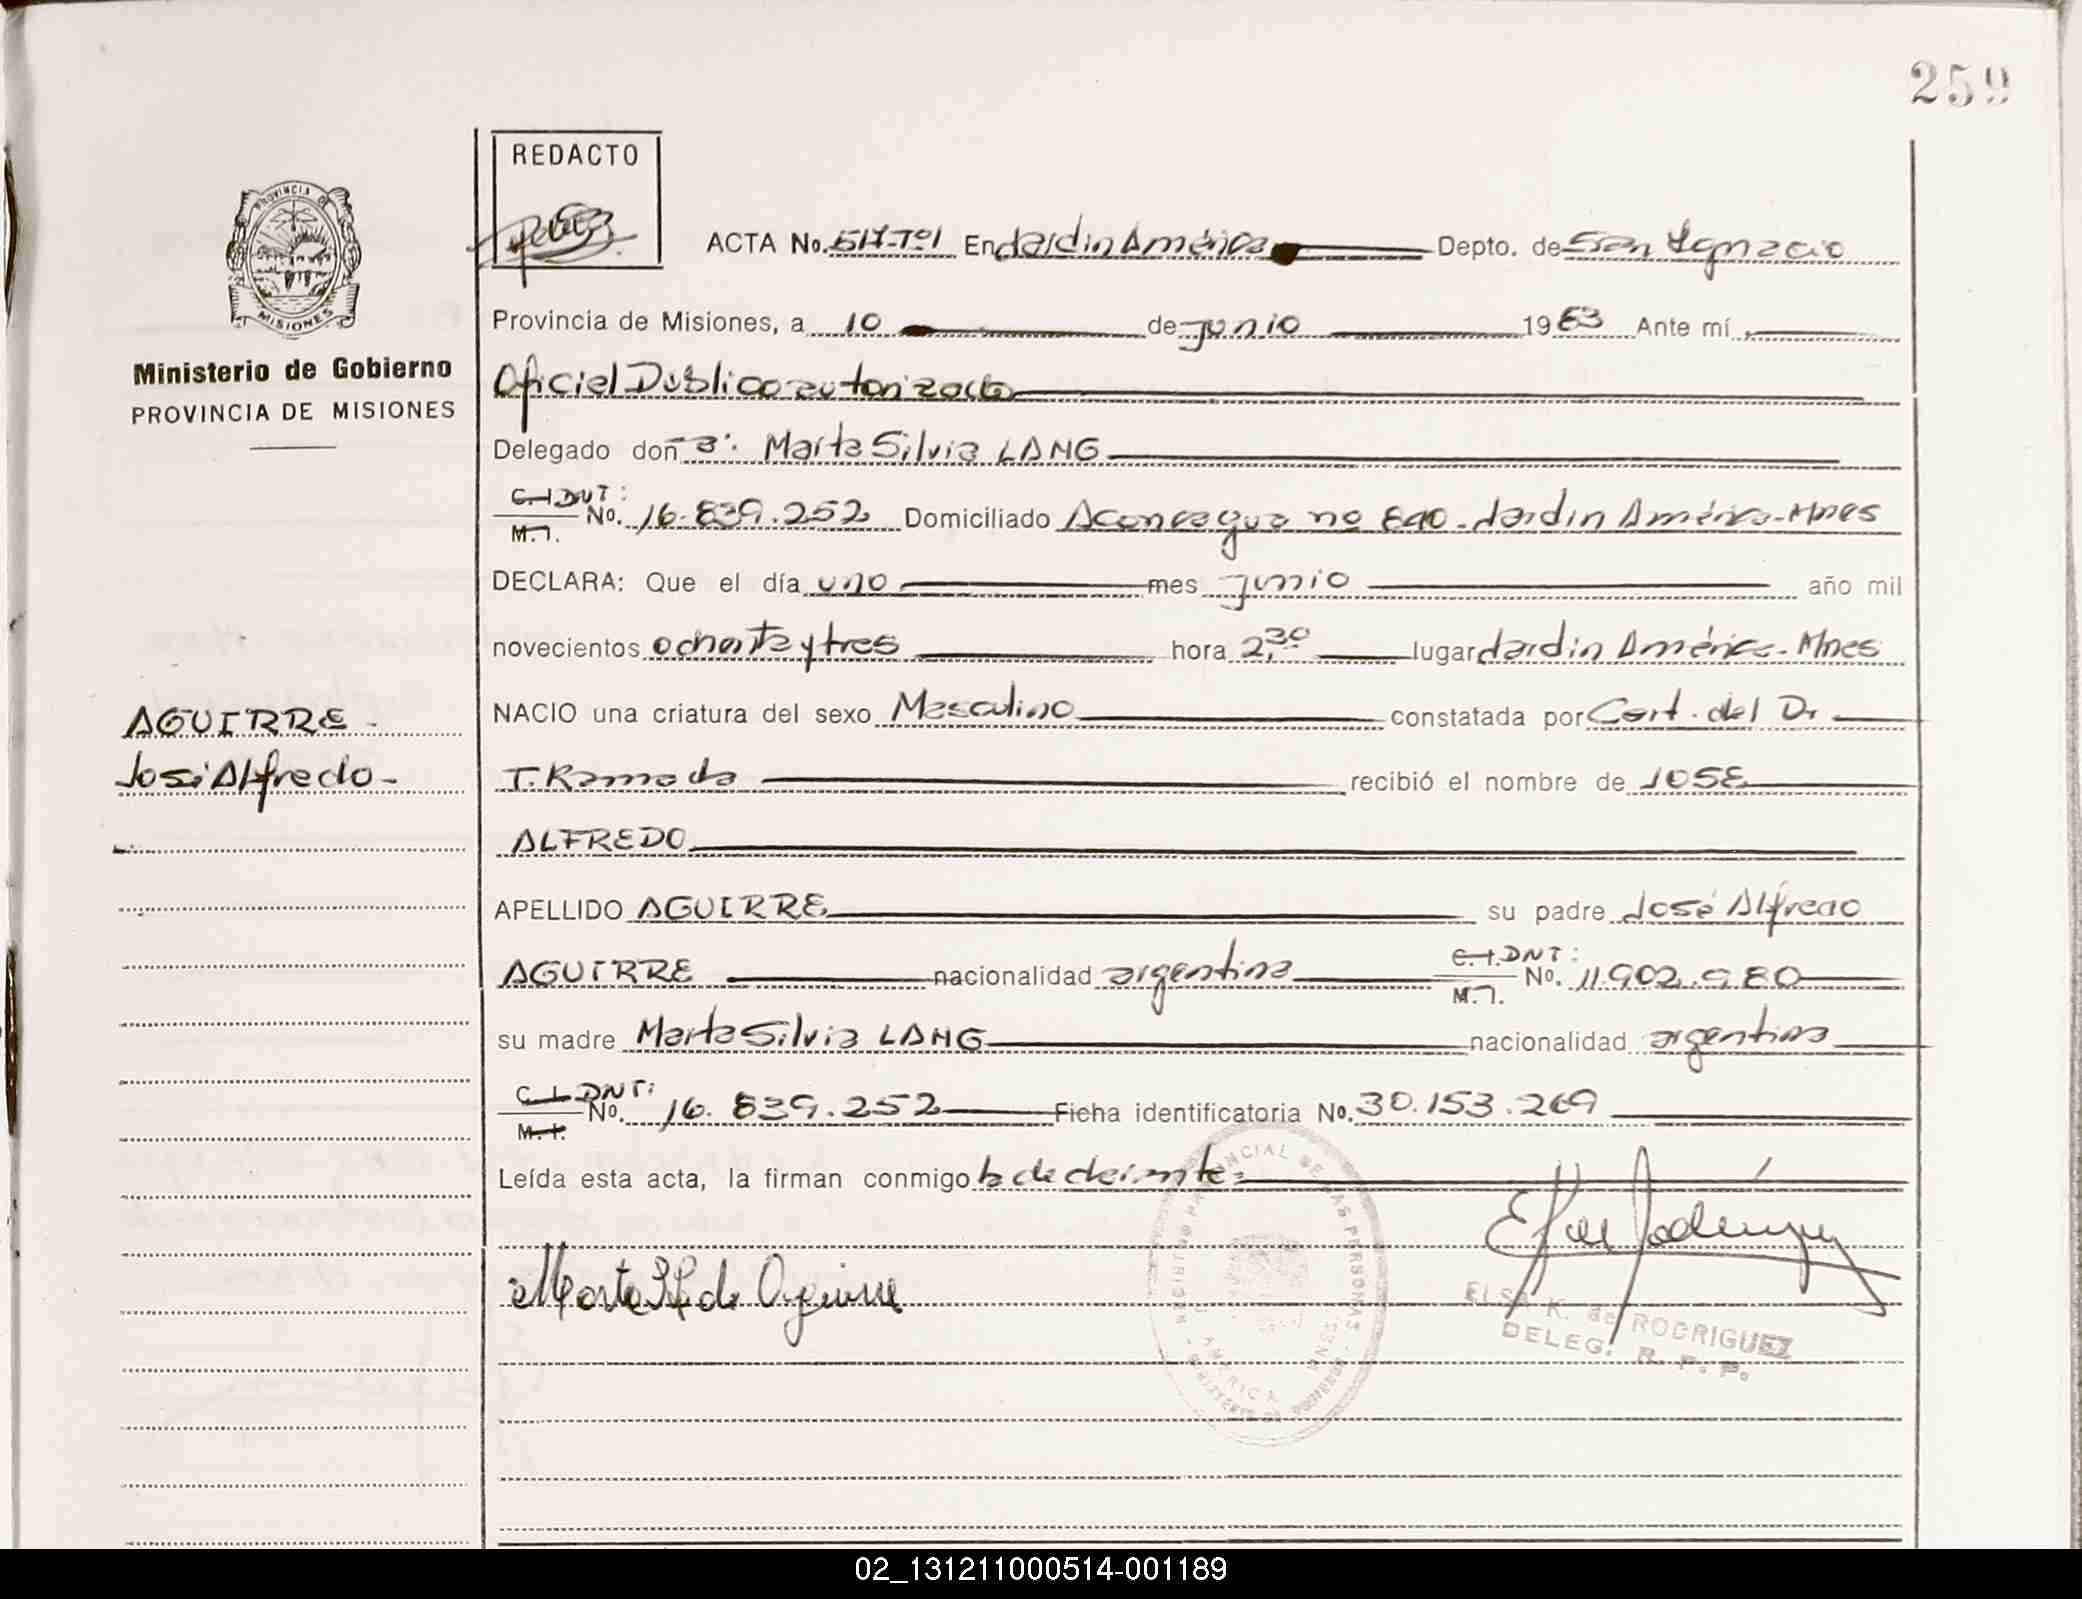 259
REDACTO
ACTA No. 517-Tº1 En Jardin América Depto. de San Ignacio
Provincia de Misiones, a 10 de junio 1983 Ante mí,
Ministerio de Gobierno
PROVINCIA DE MISIONES
Oficial Público autorizado
Delegado don a: Marta Silvia LANG
C.I. DNI: M.I. No. 16.839.252 Domiciliado Aconcagua no 840 - Jardin América - Mnes
DECLARA: Que el día uno mes junio año mil
novecientos ochenta y tres hora 2,30 lugar Jardin América - Mnes
NACIO una criatura del sexo Masculino constatada por Cert. del Dr
AGUIRRE -
José Alfredo -
T. Ramada recibió el nombre de JOSE
ALFREDO
APELLIDO AGUIRRE su padre José Alfredo
AGUIRRE nacionalidad argentina C.I. DNI: M.I. No. 11.902.980
su madre Marta Silvia LANG nacionalidad argentina
C.I. DNI: M.I. No. 16.839.252 Ficha identificatoria No. 30.153.269
Leída esta acta, la firman conmigo la declarante
Marta S L de Aguirre
ELSA K. de RODRIGUEZ
DELEG. R. P. P.
PROVINCIAL DE LAS PERSONAS
AMERICA
02_131211000514-001189